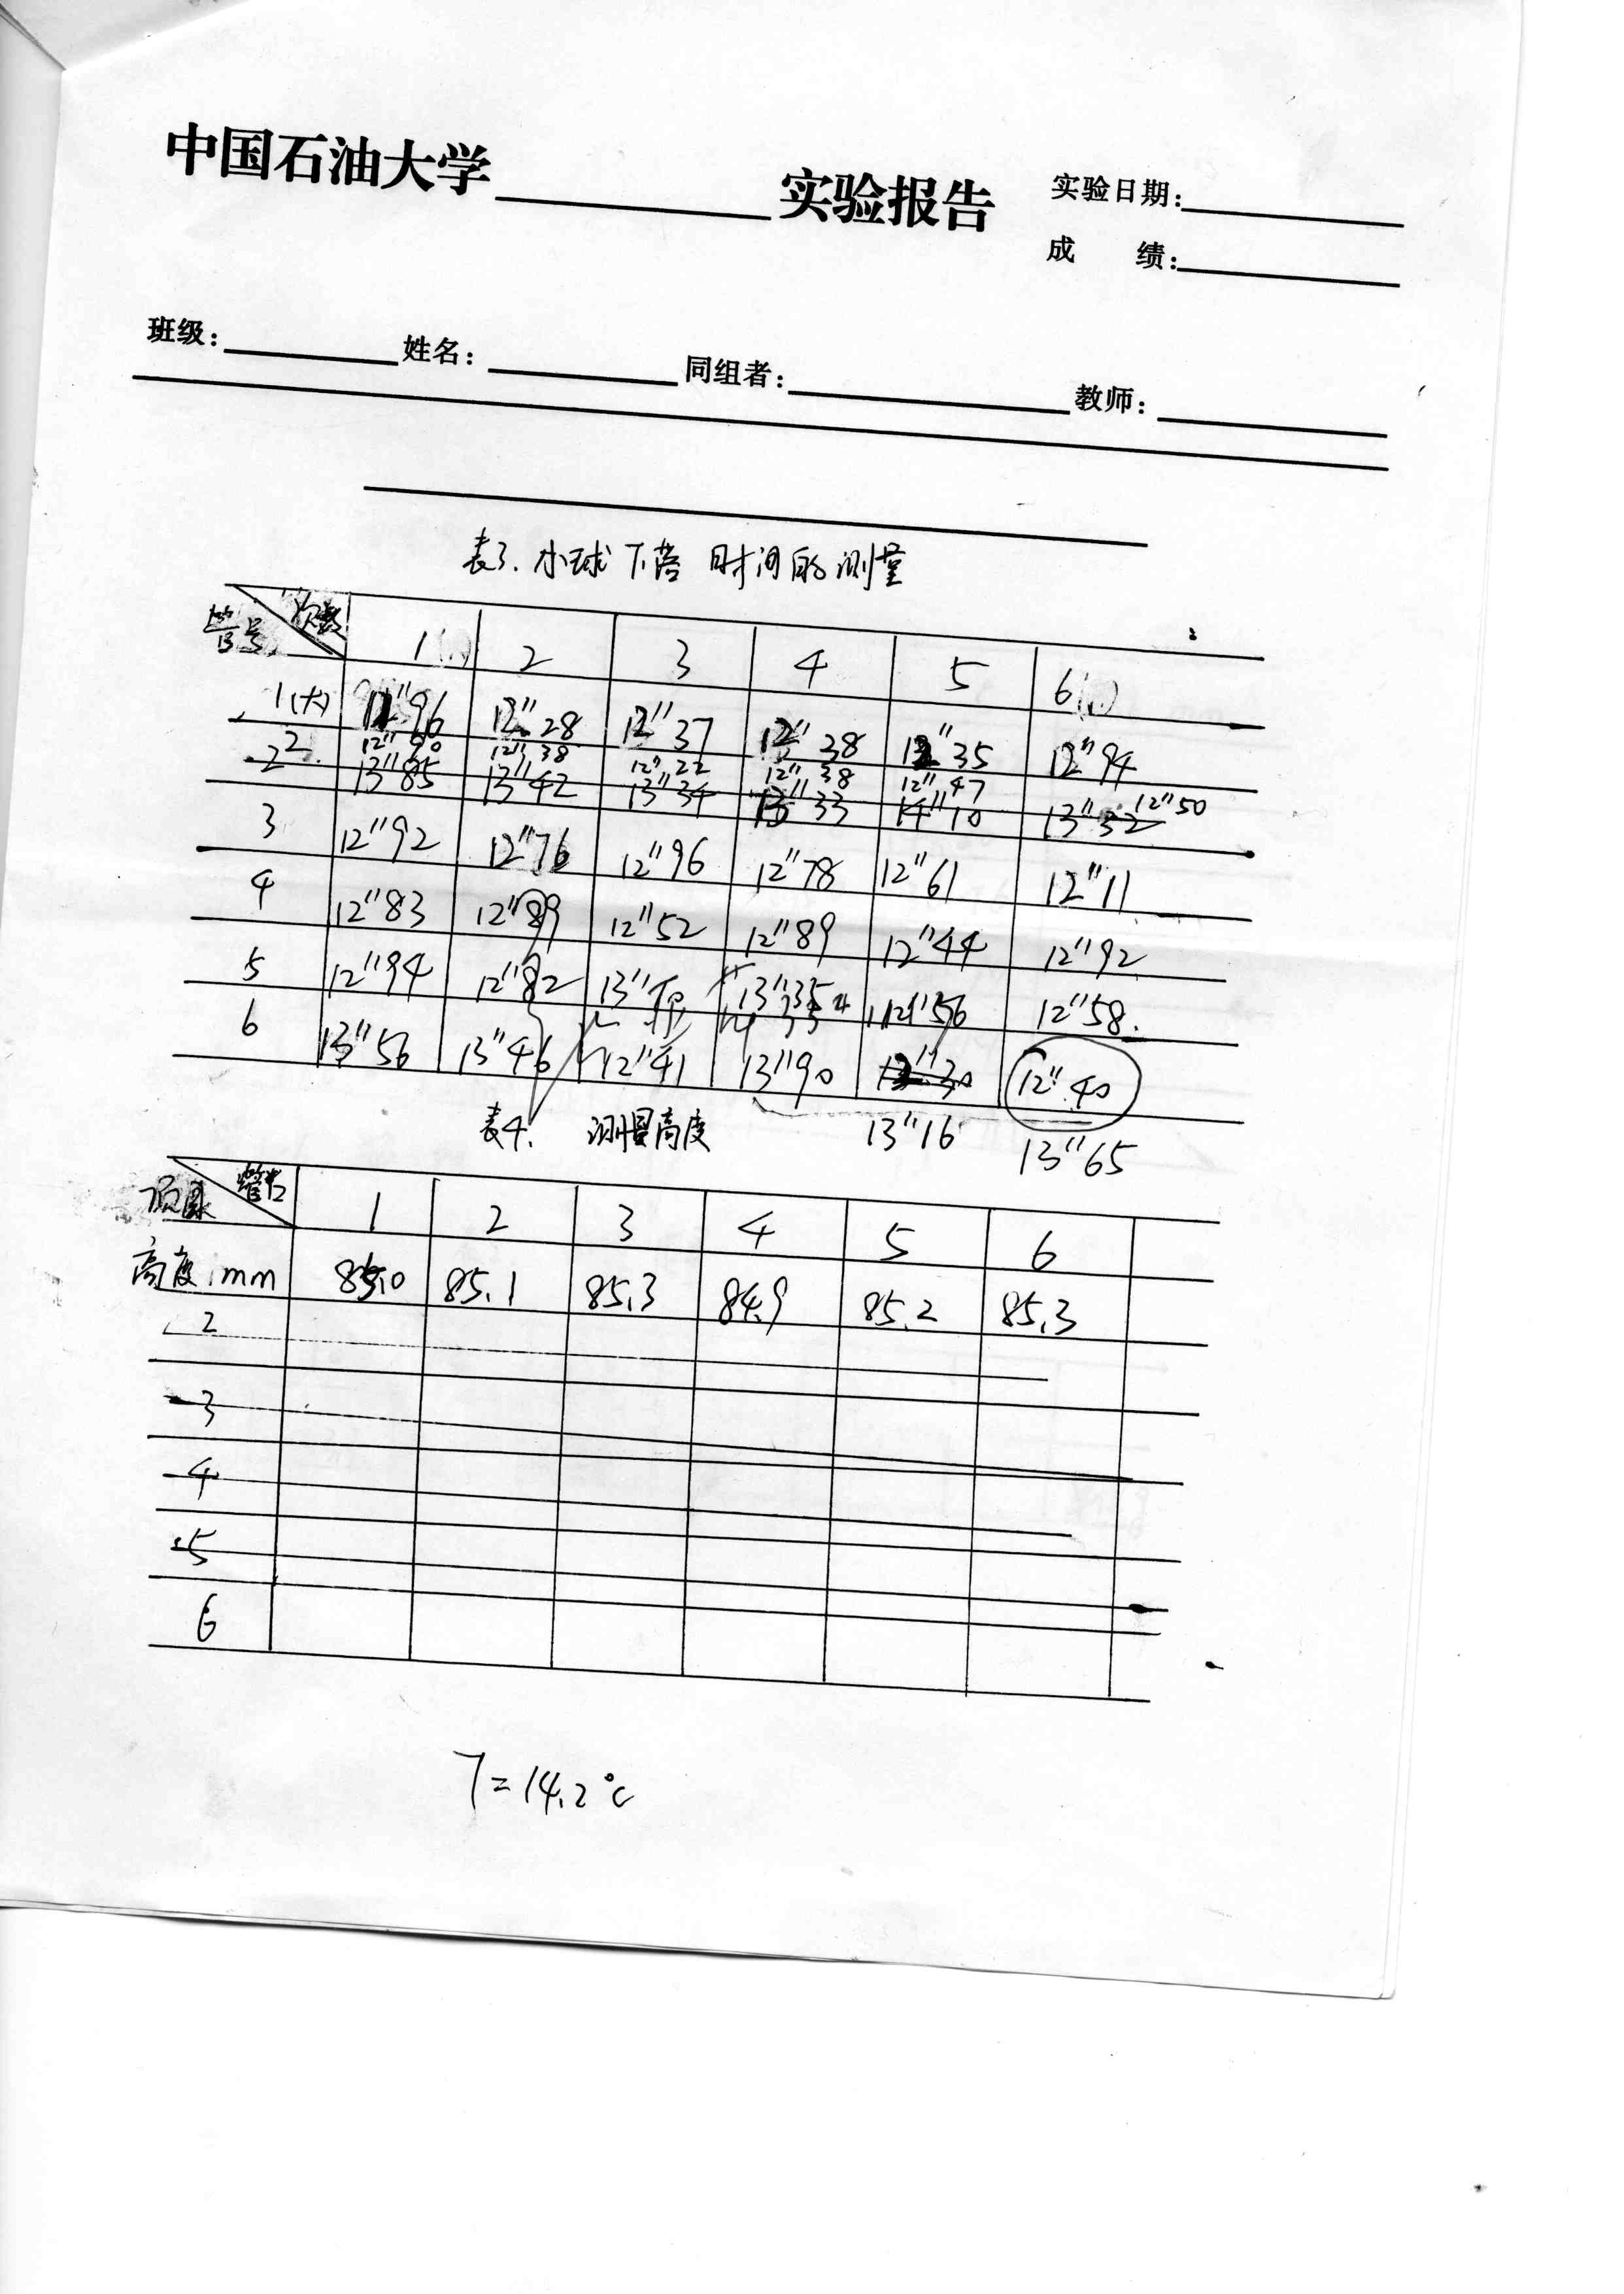 中国石油大学 实验报告 实验日期:
成 绩:
班级: 姓名: 同组者: 教师:
表3. 小球下落时间的测量
管号 次数 1 2 3 4 5 6
1(大) 12"96 12"28 12"37 12"38 12"35 12"94
2 12"90 12"38 12"22 12"38 12"47 12"50
2 13"85 13"42 13"34 13"33 14"10 13"32
3 12"92 12"76 12"96 12"78 12"61 12"11
4 12"83 12"89 12"52 12"89 12"44 12"92
5 12"94 12"82 13" 13"35 12"56 12"58
6 13"56 13"46 12"41 13"90 12"30 12"40
13"16 13"65
表4. 测量高度
管号 1 2 3 4 5 6
高度:mm 85.0 85.1 85.3 84.9 85.2 85.3
2
3
4
5
6
T=14.2°C